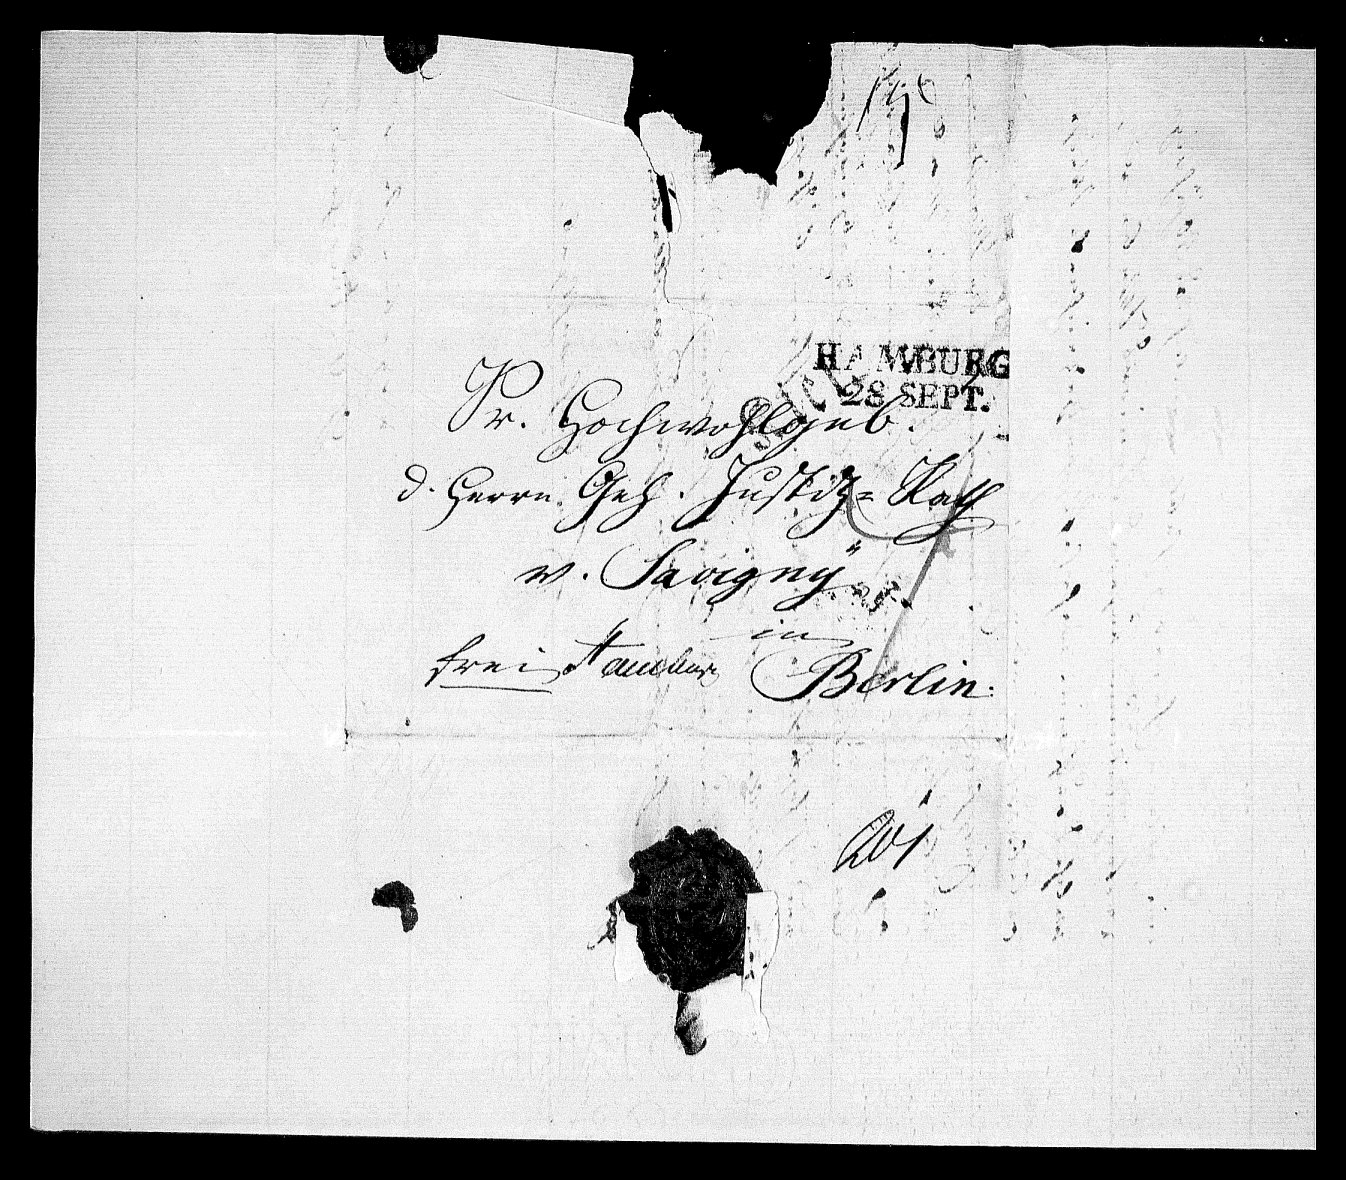 HAMBURG
28 SEPT.
Sr. Hochwohlgeb.
d. Herrn Geh. Justitz-Rath
v. Savigny
in
frei Hamburg Berlin.